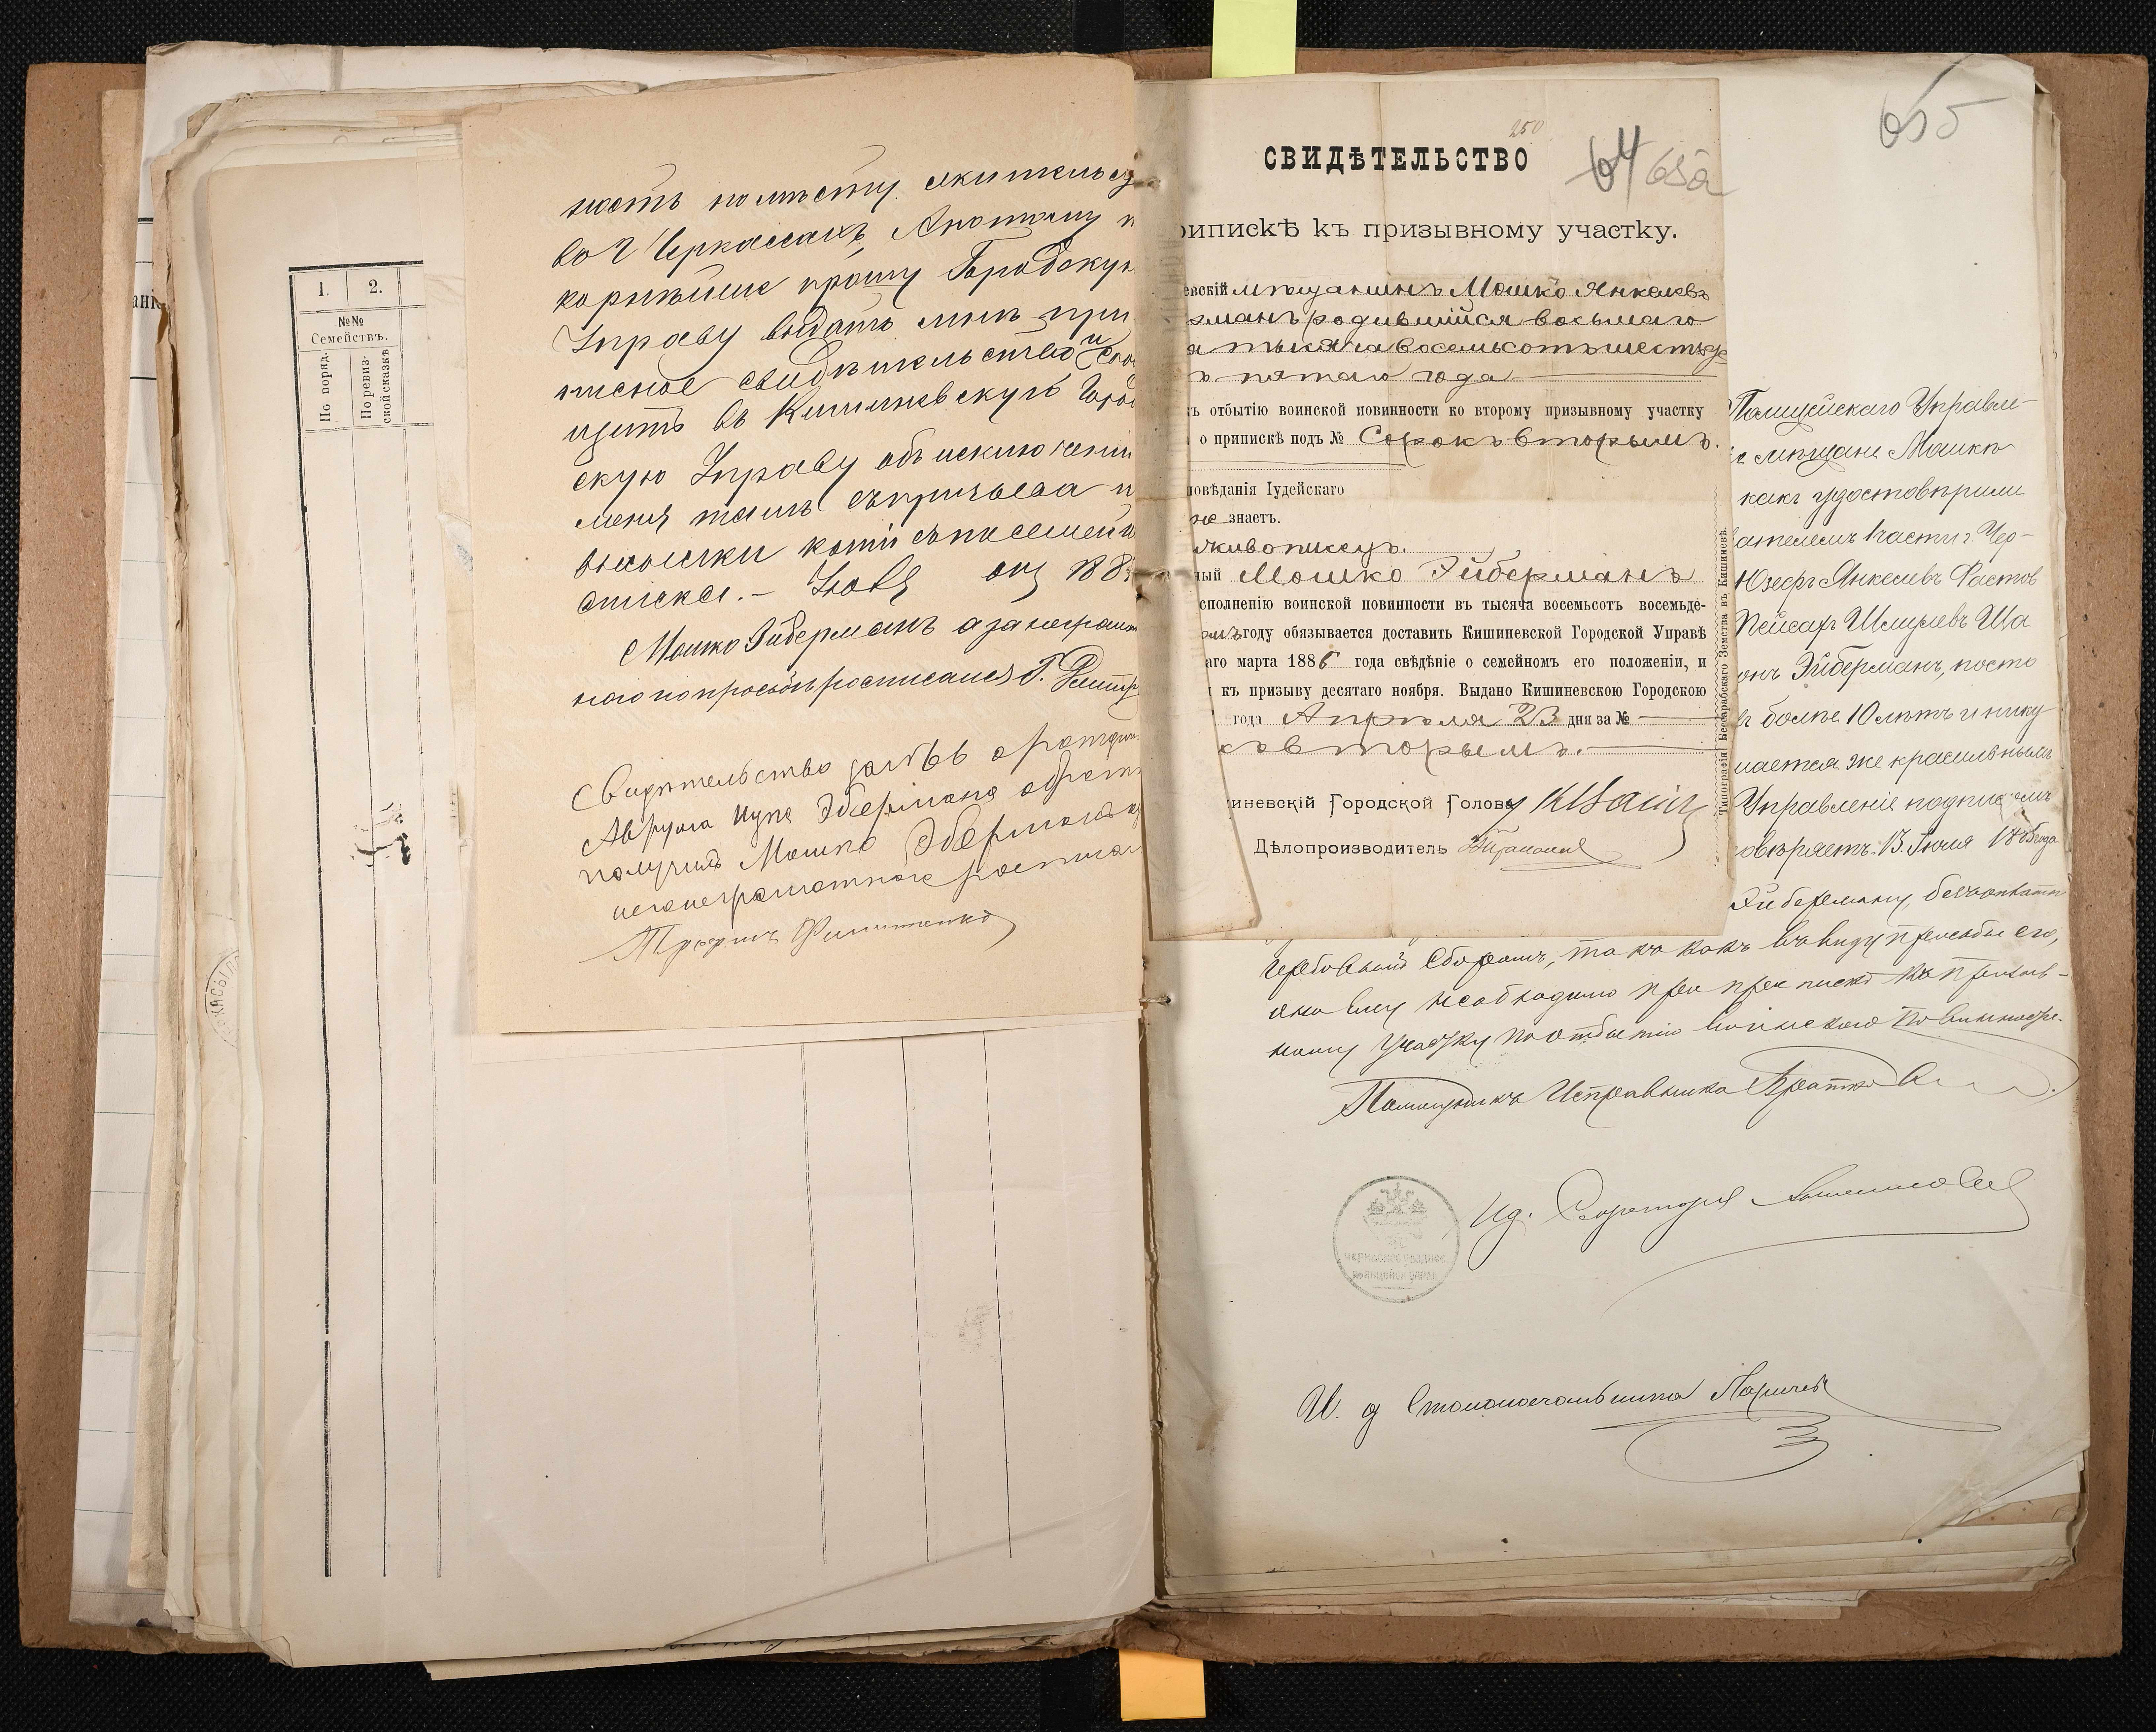 1.
2.
№№
Семействъ.
По поряд.
По ревиз-
ской сказкѣ
ность по мѣсту жительст
во г Черкассахъ, А потому п
корнѣйше прошу Городскую
Управу выдать мнѣ при
писное свидѣтельство и сооб
щить въ Кишиневскую Город
скую Управу объ исключеніи
меня тамъ съ призыва и
высылки копіи съ посемейн
списка. –
Мошко Эйберманъ а за неграмот
наго по просьбѣ росписался Г.
Свидѣтельство за № 66 о рожден
Аврума Иуне Эбермана обратн
получилъ Мошко Эберманъ а
неграмотнаго росписал
250
СВИДѢТЕЛЬСТВО
64 65а
рипискѣ къ призывному участку.
евскій мѣщанинъ Мошко Янкелевъ
рманъ родившійся восьмаго
я тысяча восемьсотъ шестьде
ъ пятаго года
ъ отбытію воинской повинности ко второму призывному участку
о припискѣ подъ № Сорокъ вторымъ.
повѣданія Іудейскаго
не знаетъ.
живописецъ.
ный Мошко Эйберманъ
сполненію воинской повинности въ тысяча восемьсотъ восемьде-
омъ году обязывается доставить Кишиневской Городской Управѣ
аго марта 1886 года свѣдѣніе о семейномъ его положеніи, и
къ призыву десятаго ноября. Выдано Кишиневскою Городскою
года Апрѣля 23 дня за №
къ вторымъ.
иневскій Городской Голова
Дѣлопроизводитель
Типографія Бессарабскаго Земства въ Кишиневѣ.
655
Полицейскаго Управле-
мѣщане Мошкѣ
какъ удостовѣрили
ателемъ 1 части г. Чер-
Юзефъ Янкелевъ
Пейсахъ Шмулевъ Ша
онъ Эйберманъ, посто
ъ болѣе 10 лѣтъ и нику
мается же красильнымъ
Управленіе подписомъ
овѣряетъ. 13 Іюля 1885 года
Эйберману, безъ оплаты
гербовымъ сборомъ, такъ какъ въ виду просьбы его,
оно ему необходимо при припискѣ къ призыв-
ному участку по отбытію воинской повинности.
Помощникъ Исправника
Ид. Секретаря
И. д Столоначальника